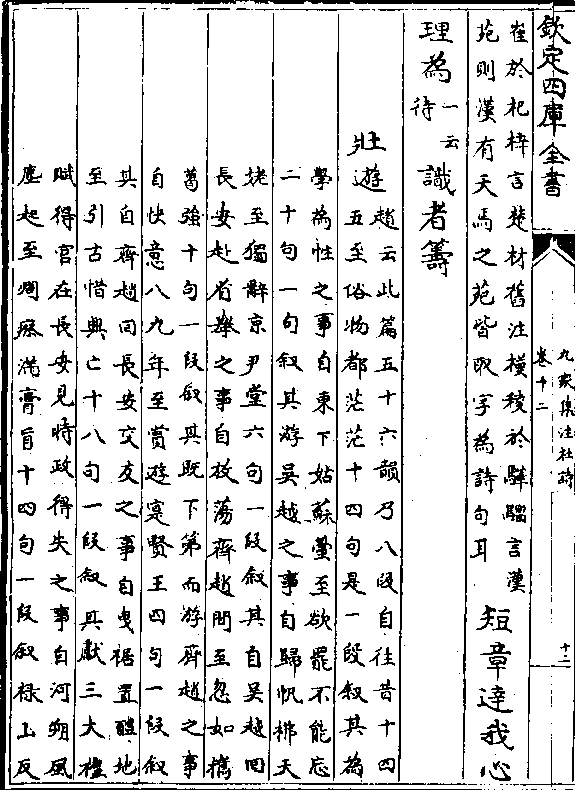 欽定四庫全書
九家集注杜詩
卷十二
十二
崔於杞梓言楚材舊注橫稜於驊騮言漢
苑則漢有天馬之苑皆取字為詩句耳
短章達我心
理為
一云
待
識者籌
壯遊
趙云此篇五十六韻乃八段自往昔十四
五至俗物都茫茫十四句是一段叙其為
學為性之事自東下姑蘇臺至欲罷不能忘
二十句一句叙其游吳越之事自歸帆拂天
姥至獨辭京尹堂六句一段叙其自吳越回
長安赴省舉之事自放蕩齊趙間至忽如攜
葛強十句一段叙其既下第而游齊趙之事
自快意八九年至賞遊寔賢王四句一段叙
其自齊趙回長安交友之事自曳裾置醴地
至引古惜興亡十八句一段叙其獻三大禮
賦得官在長安見時政得失之事自河朔風
塵起至凋瘵滿膏肓十四句一段叙禄山反